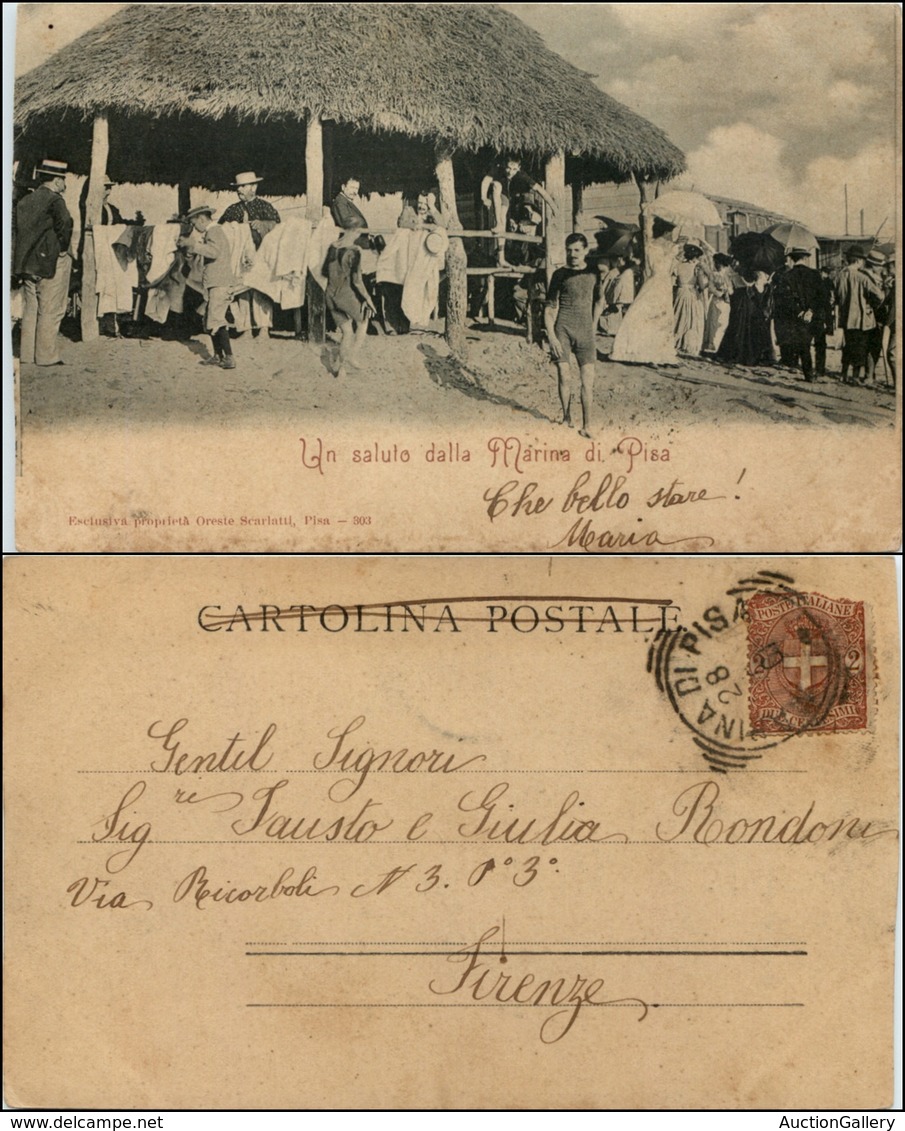 Un saluto dalla Marina di Pisa
Che bello stare!
Esclusiva proprietà Oreste Scarlatti, Pisa — 303
Maria
CARTOLINA POSTALE
POSTE ITALIANE
2 2
INA DI PISA
28
Gentil Signori
Sig.ri Fausto e Giulia Rondoni
Via Ricorboli N 3. P° 3°.
Firenze
AuctionGallery